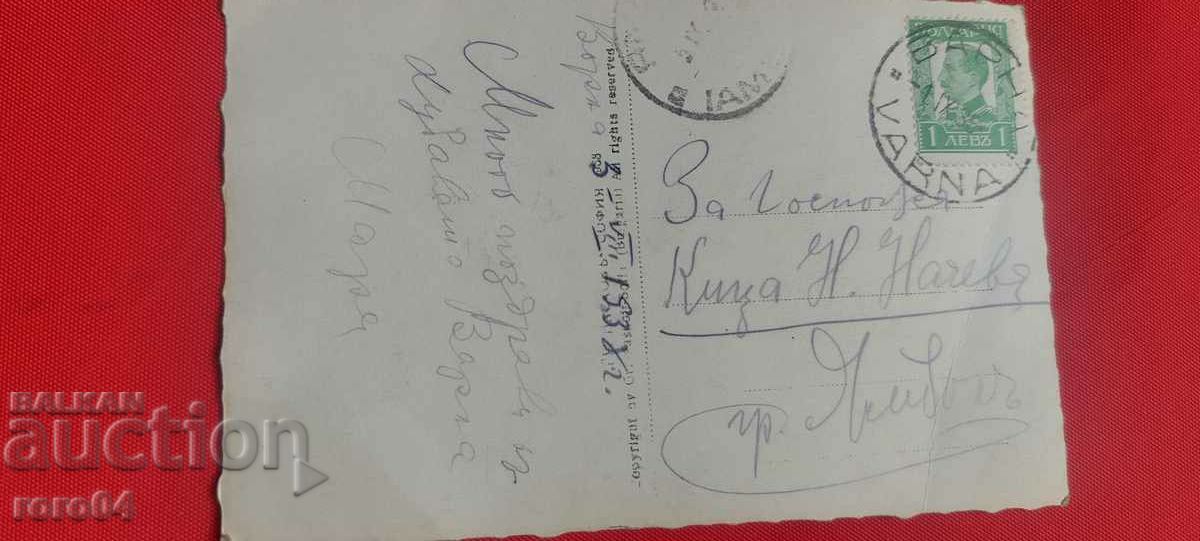 Варна 3-VII.1938 г.
Много поздрави из
хубавата Варна
Мара
Copyright by Gr. Paskoff София 1933 All rights reserved.
БЪЛГАРИЯ
1 ЛЕВЪ 1
ВАРНА
VARNA
IAM
За Госпожа
Кица Н. Начева
гр. Ямболъ
BALKAN
auction
roro04